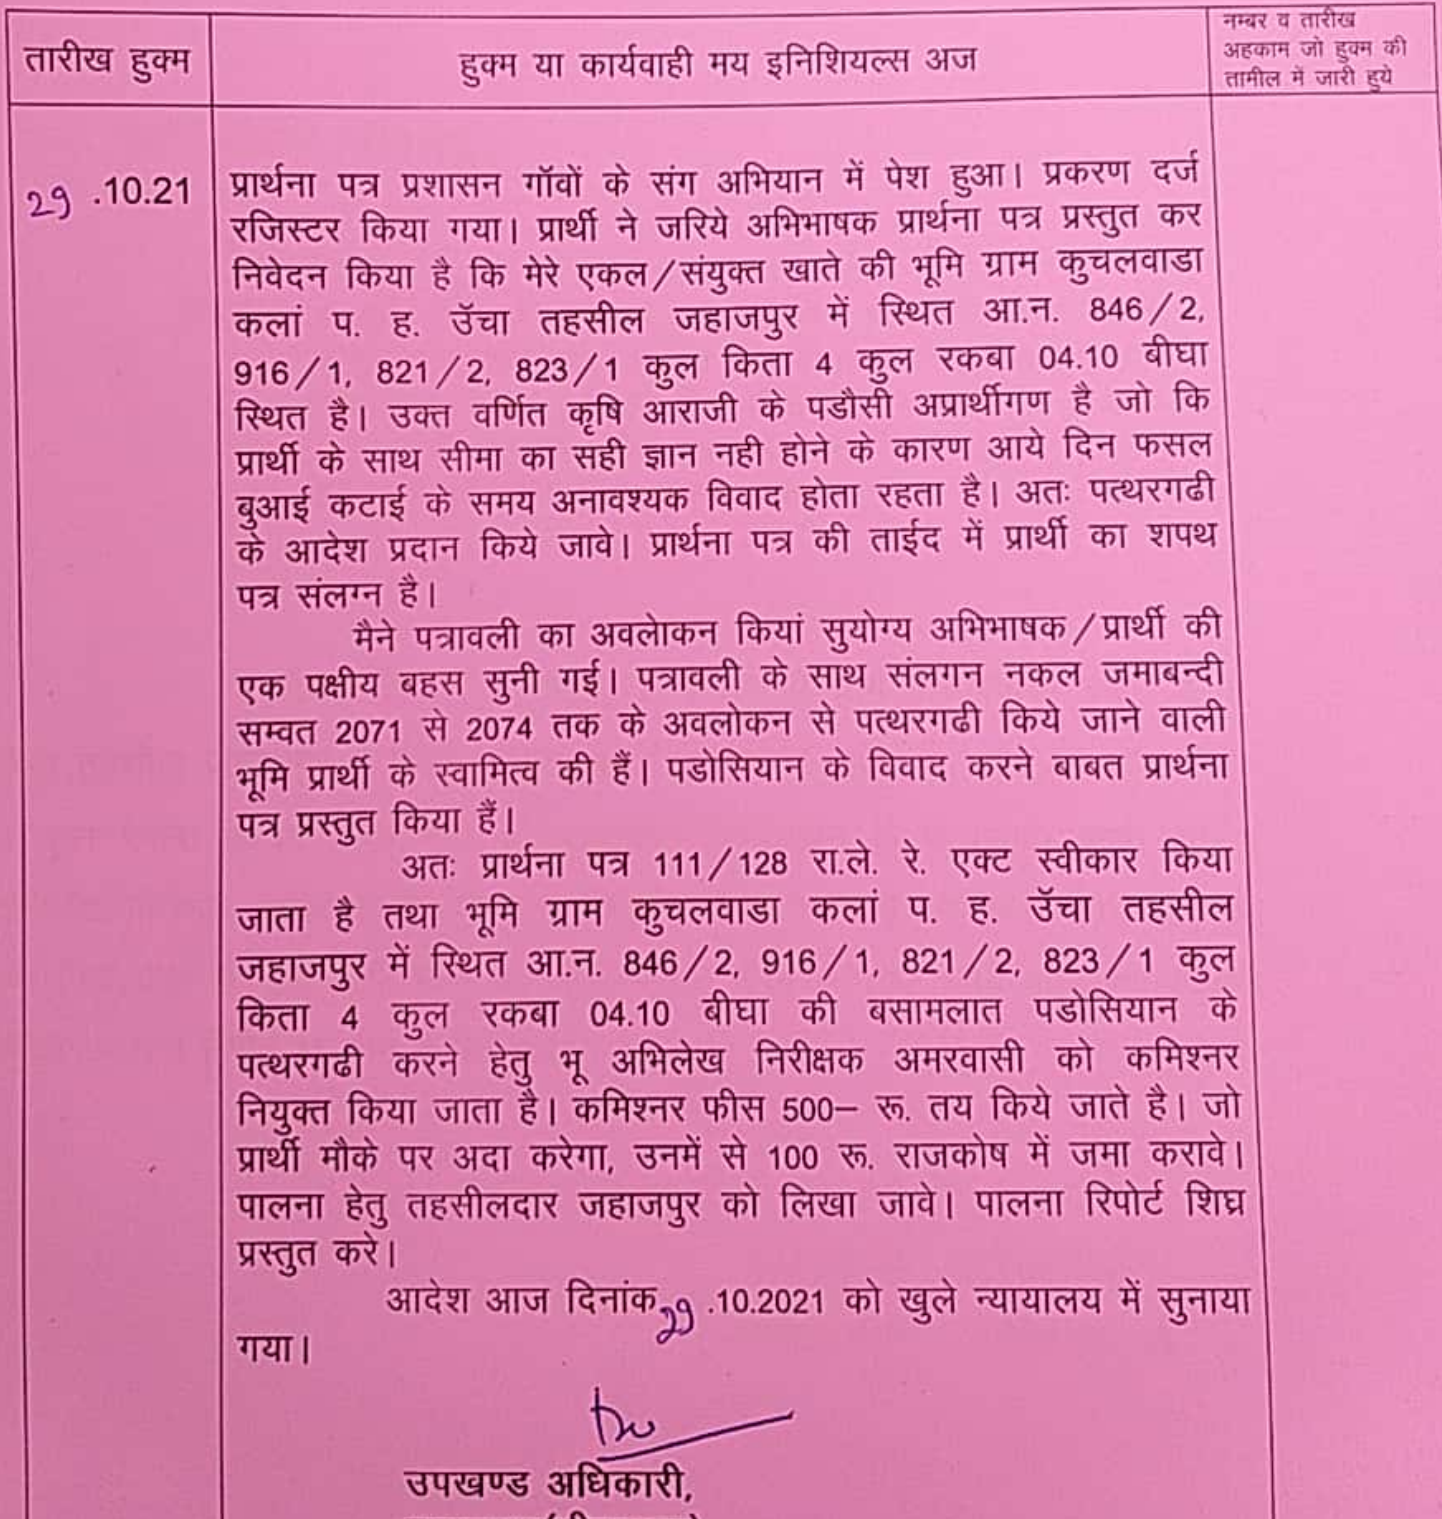 तारीख हुक्म
हुक्म या कार्यवाही मय इनिशियल्स अज
नम्बर व तारीख
अहकाम जो हुक्म की
तामील में जारी हुये
29 .10.21
प्रार्थना पत्र प्रशासन गॉवों के संग अभियान में पेश हुआ। प्रकरण दर्ज
रजिस्टर किया गया। प्रार्थी ने जरिये अभिभाषक प्रार्थना पत्र प्रस्तुत कर
निवेदन किया है कि मेरे एकल/संयुक्त खाते की भूमि ग्राम कुचलवाडा
कलां प. ह. उॅचा तहसील जहाजपुर में स्थित आ.न. 846/2,
916/1, 821/2, 823/1 कुल किता 4 कुल रकबा 04.10 बीघा
स्थित है। उक्त वर्णित कृषि आराजी के पडौसी अप्रार्थीगण है जो कि
प्रार्थी के साथ सीमा का सही ज्ञान नही होने के कारण आये दिन फसल
बुआई कटाई के समय अनावश्यक विवाद होता रहता है। अतः पत्थरगढी
के आदेश प्रदान किये जावे। प्रार्थना पत्र की ताईद में प्रार्थी का शपथ
पत्र संलग्न है।
मैने पत्रावली का अवलेाकन कियां सुयोग्य अभिभाषक/प्रार्थी की
एक पक्षीय बहस सुनी गई। पत्रावली के साथ संलगन नकल जमाबन्दी
सम्वत 2071 से 2074 तक के अवलोकन से पत्थरगढी किये जाने वाली
भूमि प्रार्थी के स्वामित्व की हैं। पडोसियान के विवाद करने बाबत प्रार्थना
पत्र प्रस्तुत किया हैं।
अतः प्रार्थना पत्र 111/128 रा.ले. रे. एक्ट स्वीकार किया
जाता है तथा भूमि ग्राम कुचलवाडा कलां प. ह. उॅचा तहसील
जहाजपुर में स्थित आ.न. 846/2, 916/1, 821/2, 823/1 कुल
किता 4 कुल रकबा 04.10 बीघा की बसामलात पडोसियान के
पत्थरगढी करने हेतु भू अभिलेख निरीक्षक अमरवासी को कमिश्नर
नियुक्त किया जाता है। कमिश्नर फीस 500– रू. तय किये जाते है। जो
प्रार्थी मौके पर अदा करेगा, उनमें से 100 रू. राजकोष में जमा करावे।
पालना हेतु तहसीलदार जहाजपुर को लिखा जावे। पालना रिपोर्ट शिघ्र
प्रस्तुत करे।
आदेश आज दिनांक 29 .10.2021 को खुले न्यायालय में सुनाया
गया।
उपखण्ड अधिकारी,